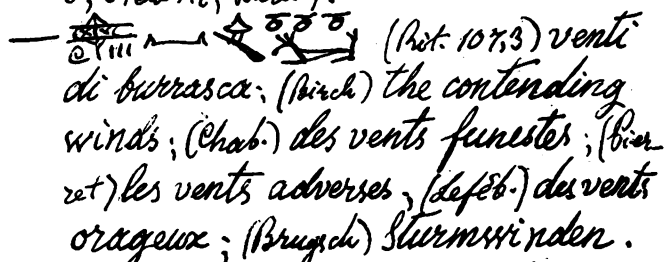 — (Rit. 107,3) venti
di burrasca; (Birch) the contending
winds; (Chab.) des vents funestes; (Pier-
ret) les vents adverses, (Leféb.) des vents
orageux; (Brugsch) Sturmwinden.